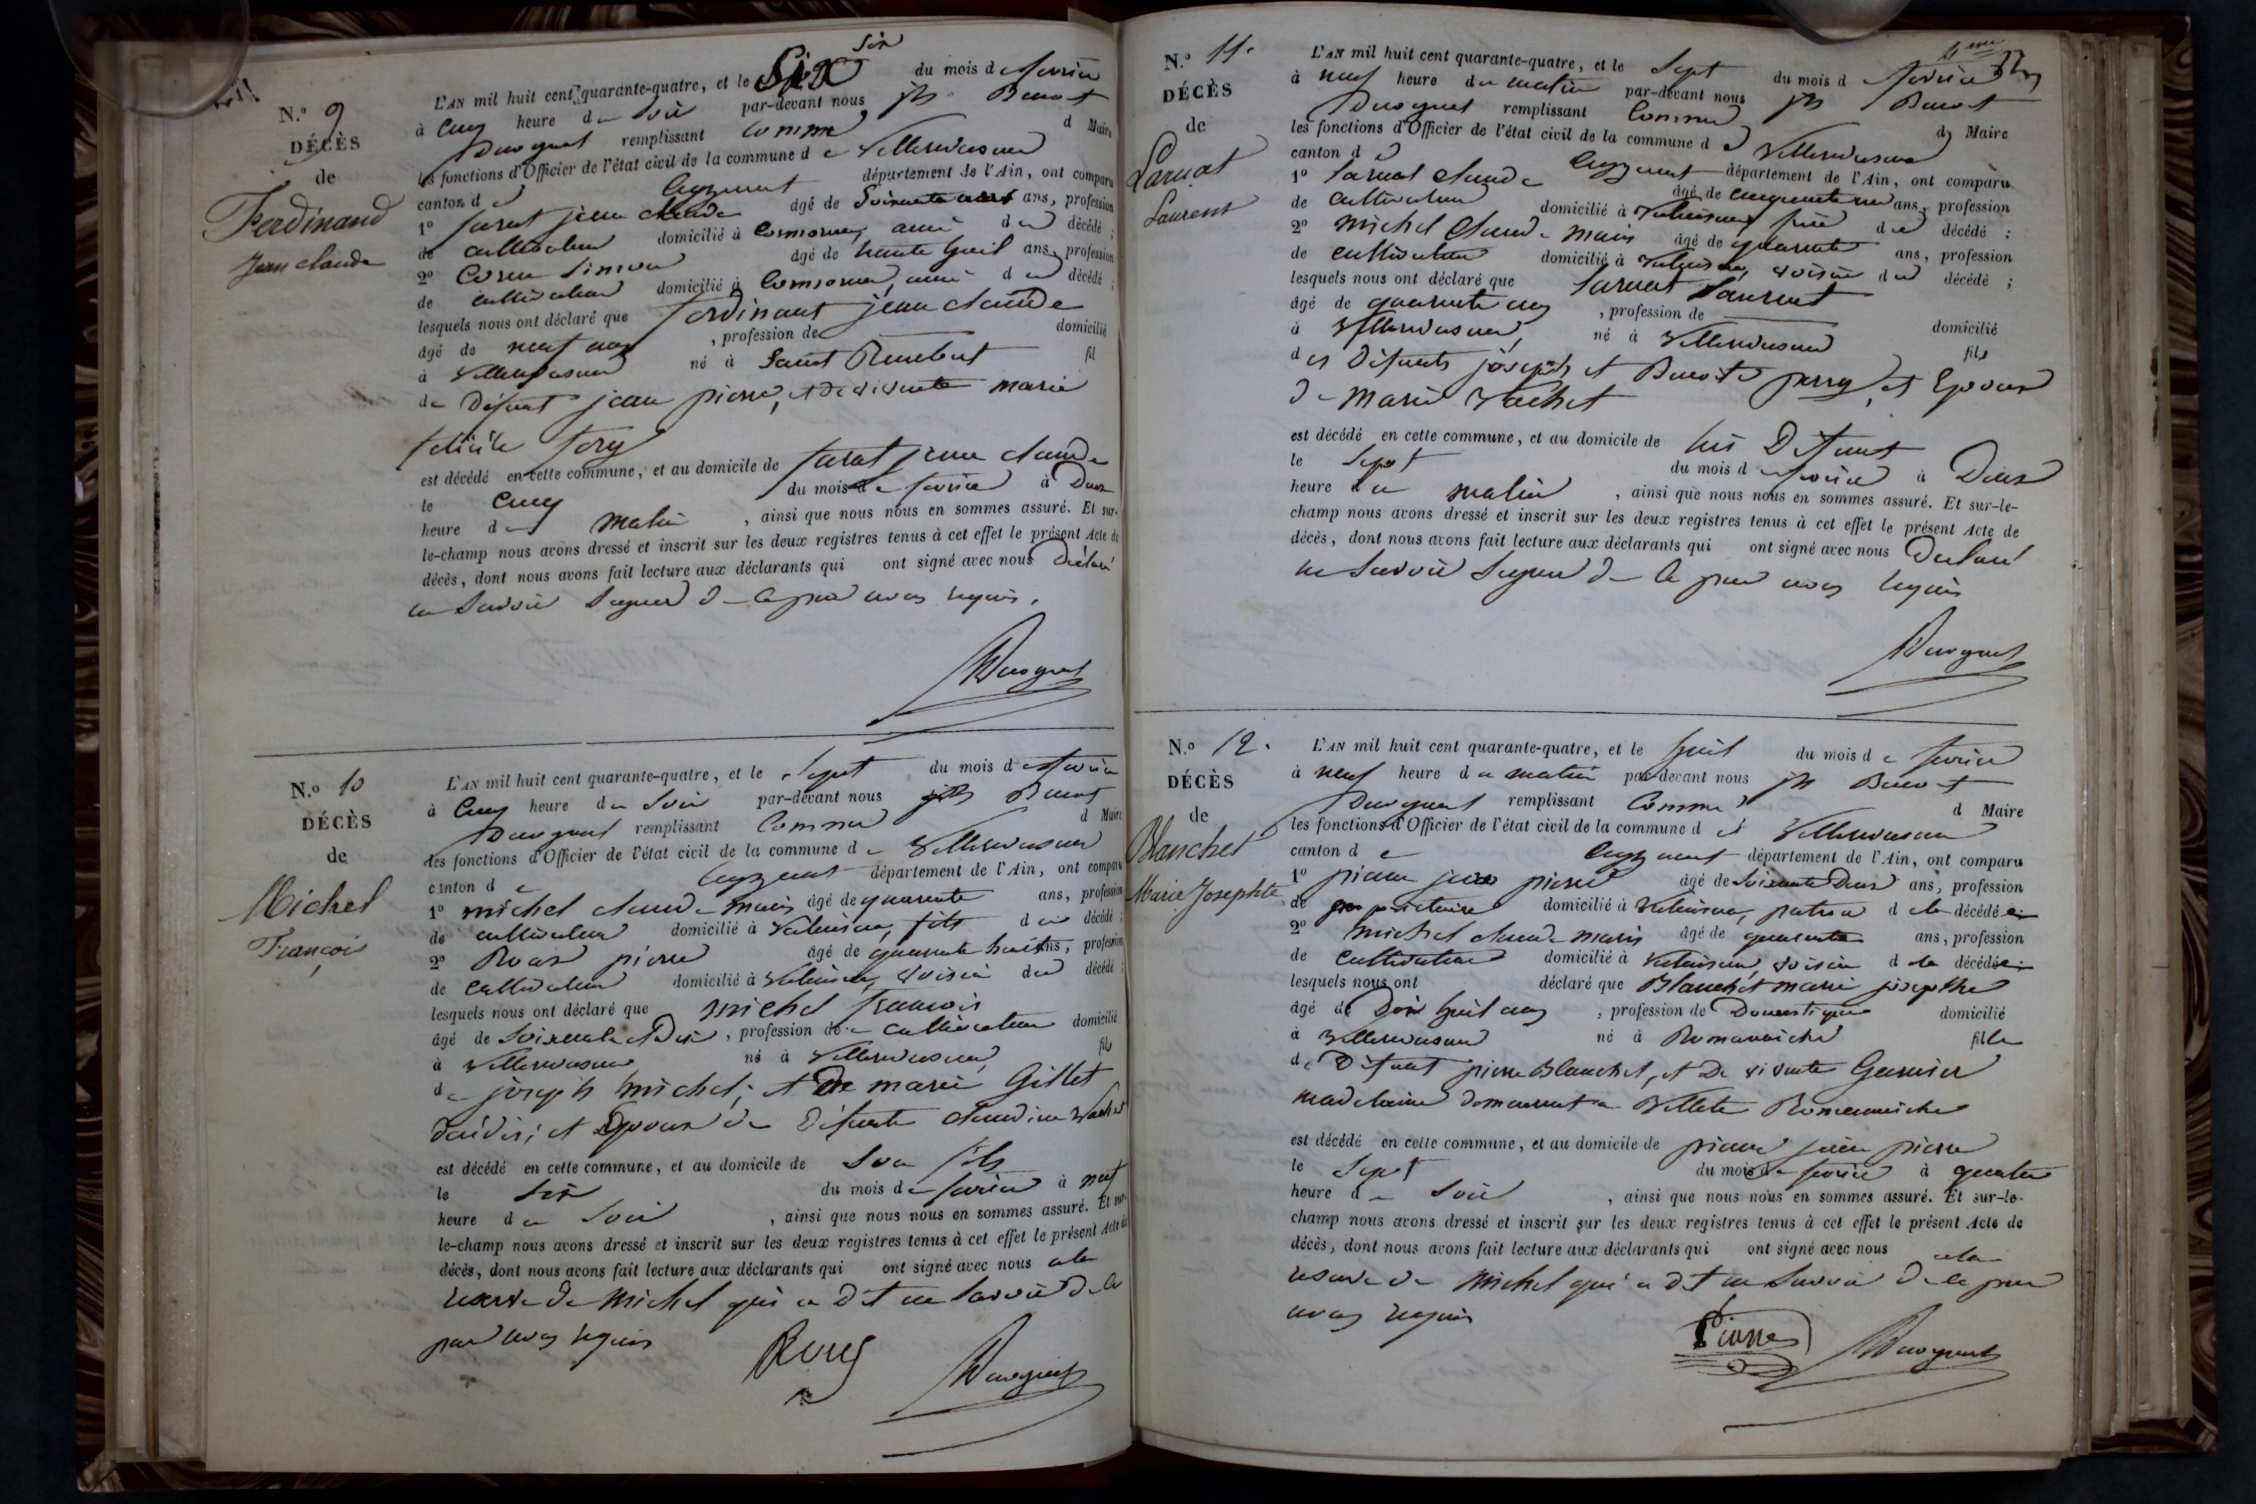 N.º 9
DÉCÈS
de
Ferdinand
Jean claude
six
L'AN mil huit cent quarante-quatre, et le Six du mois de février
à cinq heure du soir par-devant nous Benoit
Ducognet remplissant comme d Maire
les fonctions d'Officier de l'état civil de la commune de Villereversure
canton de Ceyzeriat département de l'Ain, ont comparu
1º jean claude âgé de Soixante ans, profession
de cultivateur domicilié à ami du décédé ;
2º Simon âgé de trente huit ans, profession
de cultivateur domicilié à ami du décédé ;
lesquels nous ont déclaré que ferdinant jean claude
âgé de neuf ans , profession de domicilié
à Villereversure né à Saint Rembert fil
de Défunt jean pierre, et de vivante marie
felicité
est décédé en cette commune, et au domicile de jean claude
le cinq du mois de février à Deux
heure du matin , ainsi que nous nous en sommes assuré. Et sur-
le-champ nous avons dressé et inscrit sur les deux registres tenus à cet effet le présent Acte de
décès, dont nous avons fait lecture aux déclarants qui ont signé avec nous Déclaré
ne Savoir Signer de ce par nous requis.
Ducognet
N.º 10
DÉCÈS
de
Michel
François
L'AN mil huit cent quarante-quatre, et le Sept du mois de février
à cinq heure du Soir par-devant nous Benoit
Ducognet remplissant comme d Maire
les fonctions d'Officier de l'état civil de la commune de Villereversure
canton de Ceyzeriat département de l'Ain, ont comparu
1º michel claude marie âgé de quarante ans, profession
de cultivateur domicilié à fils du décédé ;
2º pierre âgé de quarante huit ans, profession
de cultivateur domicilié à voisin du décédé ;
lesquels nous ont déclaré que michel francois
âgé de Soixante et Dix , profession de cultivateur domicilié
à Villereversure né à Villereversure, fils
de joseph michel, et De marie Gillet
décédés; et Epoux de Défunte claudine Vachet
est décédé en cette commune, et au domicile de Son fils
le Six du mois de février à neuf
heure du Soir , ainsi que nous nous en sommes assuré. Et sur-
le-champ nous avons dressé et inscrit sur les deux registres tenus à cet effet le présent Acte de
décès, dont nous avons fait lecture aux déclarants qui ont signé avec nous a la
reserve de Michel qui a dit ne Savoir de ce
par nous requis
Ducognet
N.º 11.
DÉCÈS
de
Laurent
L'AN mil huit cent quarante-quatre, et le Sept du mois de février
à neuf heure du matin par-devant nous Benoit
Ducognet remplissant comme d Maire
les fonctions d'Officier de l'état civil de la commune de Villereversure
canton de Ceyzeriat département de l'Ain, ont comparu
1º claude âgé de cinquante ans, profession
de cultivateur domicilié à frère du décédé ;
2º michel claude marie âgé de quarante ans, profession
de cultivateur domicilié à voisin du décédé ;
lesquels nous ont déclaré que Laurent
âgé de quarante ans , profession de domicilié
à Villereversure, né à Villereversure fils
des Défunts joseph et Benoite perry, et Epoux
De Marie Vachet
est décédé en cette commune, et au domicile de luis Défunt
le Sept du mois de février à Deux
heure du matin , ainsi que nous nous en sommes assuré. Et sur-le-
champ nous avons dressé et inscrit sur les deux registres tenus à cet effet le présent Acte de
décès, dont nous avons fait lecture aux déclarants qui ont signé avec nous Déclaré
ne Savoir Signer de ce par nous requis
Ducognet
N.º 12.
DÉCÈS
de
Blanchet
Marie Josephte
L'AN mil huit cent quarante-quatre, et le huit du mois de février
à neuf heure du matin par-devant nous Benoit
Ducognet remplissant comme d Maire
les fonctions d'Officier de l'état civil de la commune de Villereversure
canton de Ceyzeriat département de l'Ain, ont comparu
1º pierre âgé de Soixante Deux ans, profession
de propriétaire domicilié à patron de la décédée
2º michel claude marie âgé de quarante ans, profession
de cultivateur domicilié à voisin de la décédée
lesquels nous ont déclaré que Blanchet marie josephte
âgé de Dix huit ans , profession de Domestique domicilié
à Villereversure né à Romanèche fille
de Défunt pierre Blanchet, et De vivante Garnier
madelaine demeurant a Romanèche
est décédé en cette commune, et au domicile de pierre
le Sept du mois de février à quatre
heure du Soir , ainsi que nous nous en sommes assuré. Et sur-le-
champ nous avons dressé et inscrit sur les deux registres tenus à cet effet le présent Acte de
décès, dont nous avons fait lecture aux déclarants qui ont signé avec nous a la
reserve de Michel qui a dit ne Savoir de ce par
nous requis
Ducognet